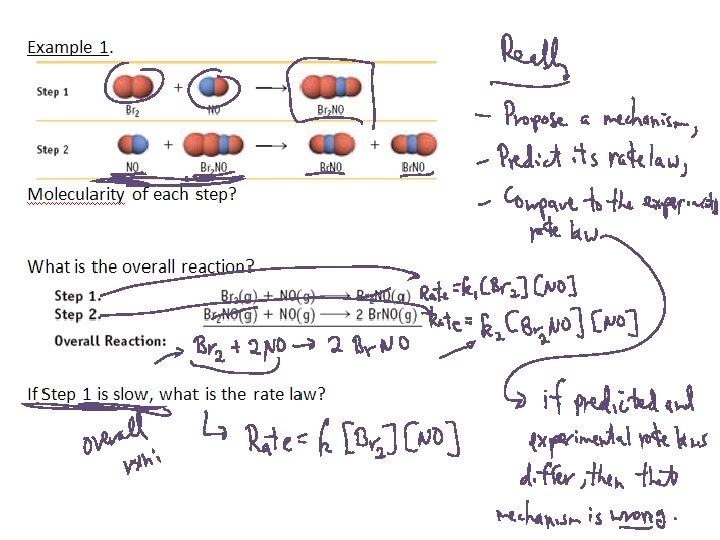 Example 1.
Step 1
+
→
Br₂
NO
Br₂NO
Step 2
+
→
+
NO
Br₂NO
BrNO
BrNO
Molecularity of each step?
What is the overall reaction?
Step 1. Br₂(g) + NO(g) → Br₂NO(g) Rate = k₁[Br₂][NO]
Step 2. Br₂NO(g) + NO(g) → 2 BrNO(g) Rate = k₂[Br₂NO][NO]
Overall Reaction: → Br₂ + 2NO → 2 BrNO
If Step 1 is slow, what is the rate law?
overall
Rate = k [Br₂][NO]
Really
- Propose a mechanism,
- Predict its rate law,
- Compare to the experimental
rate law.
if predicted and
experimental rate laws
differ, then that
mechanism is wrong.